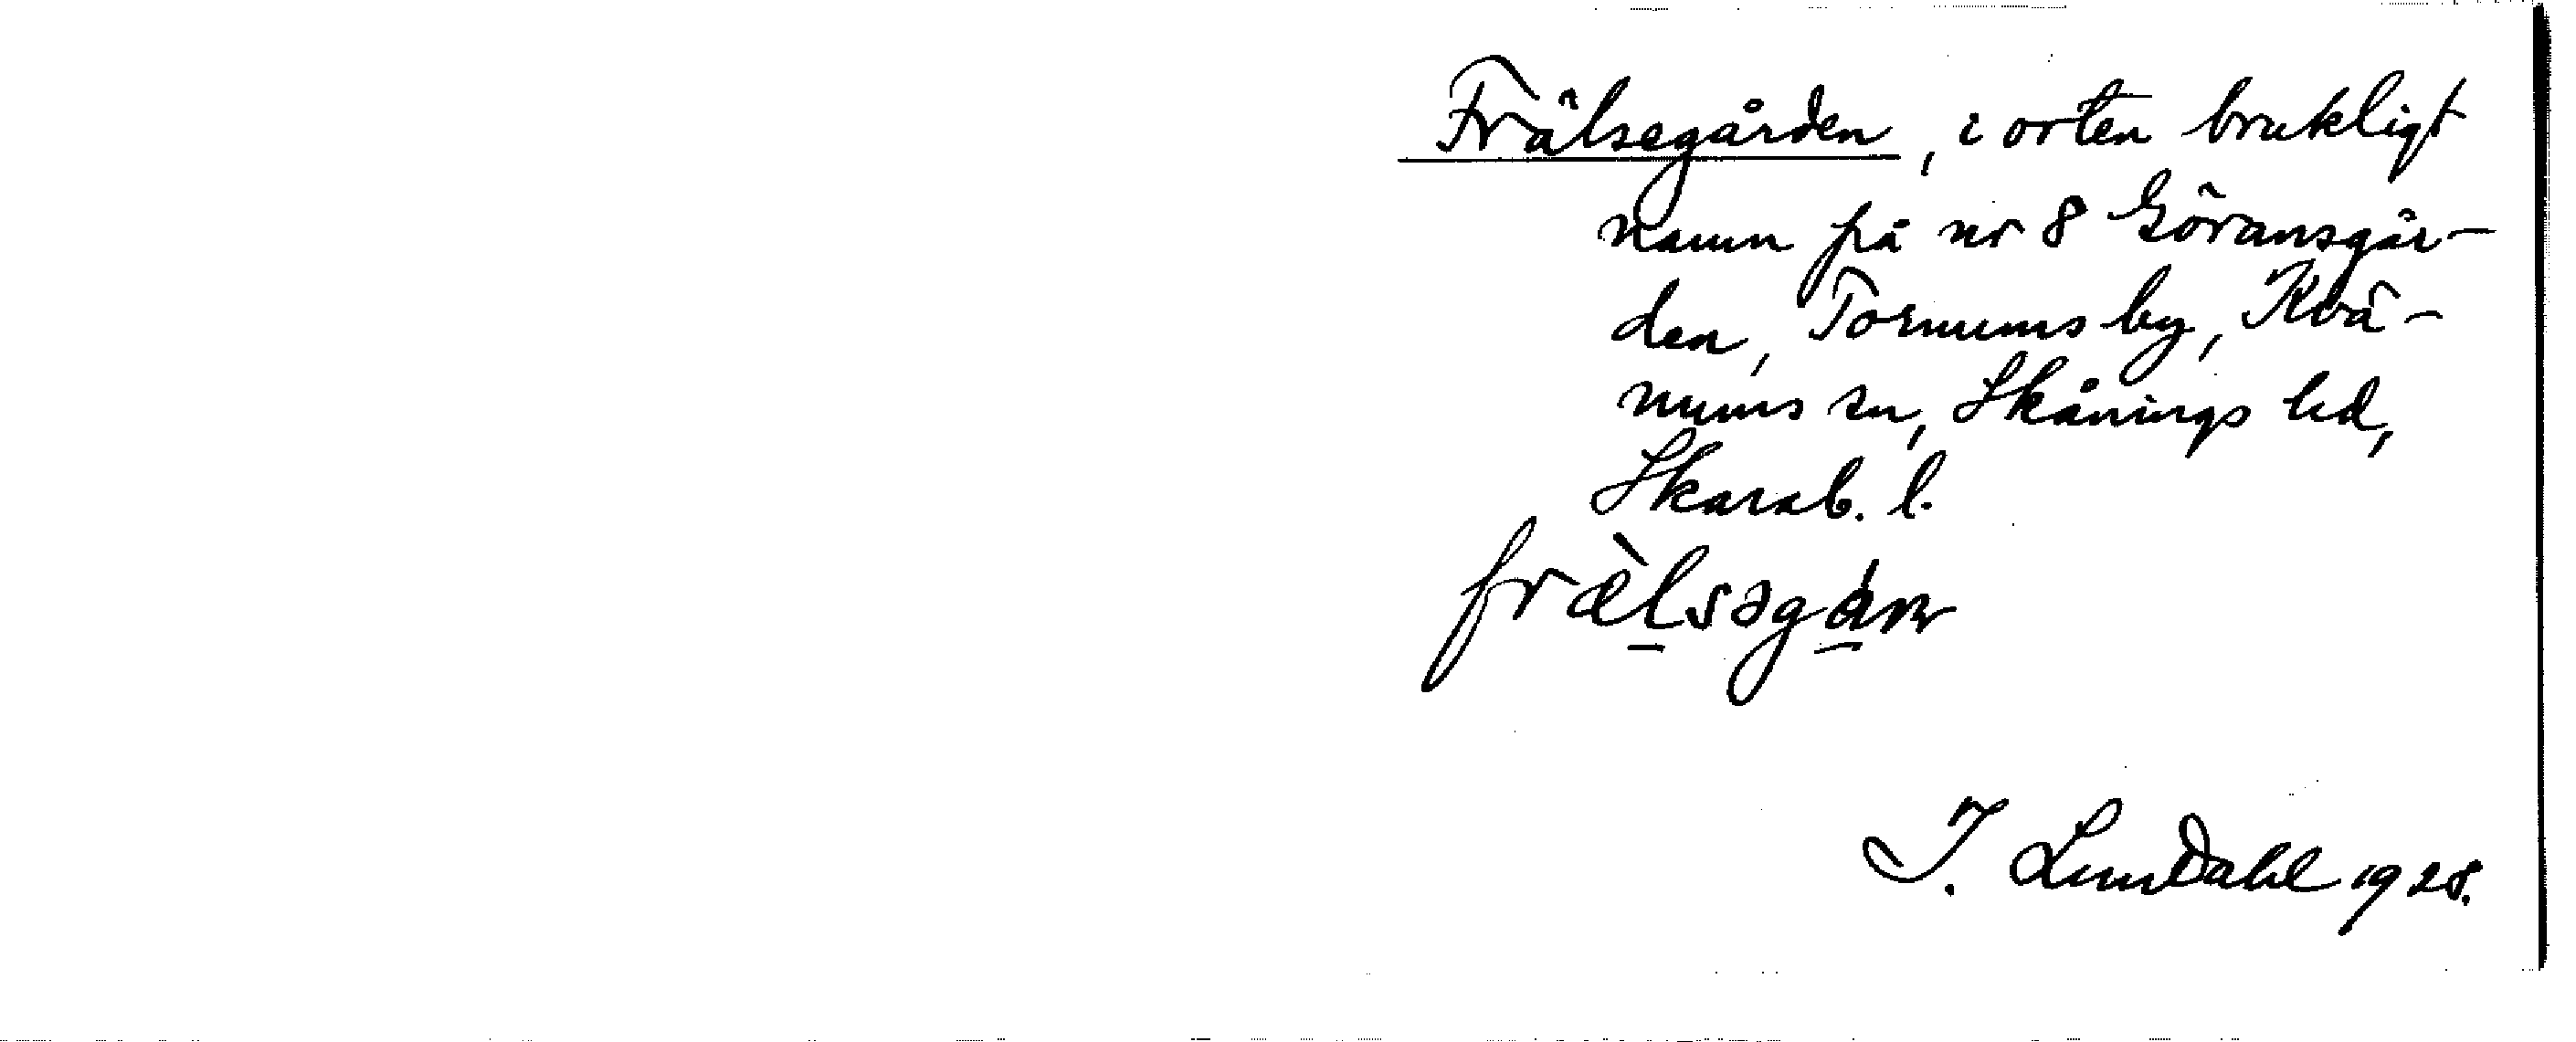 Frälsegården, i orten brukligt
namn på nr 8 Göransgår-
den, Tornums by, Kvä-
nums sn, Skånings hd,
Skarab. l.
frælsəgån
I. Lundahl 1928.